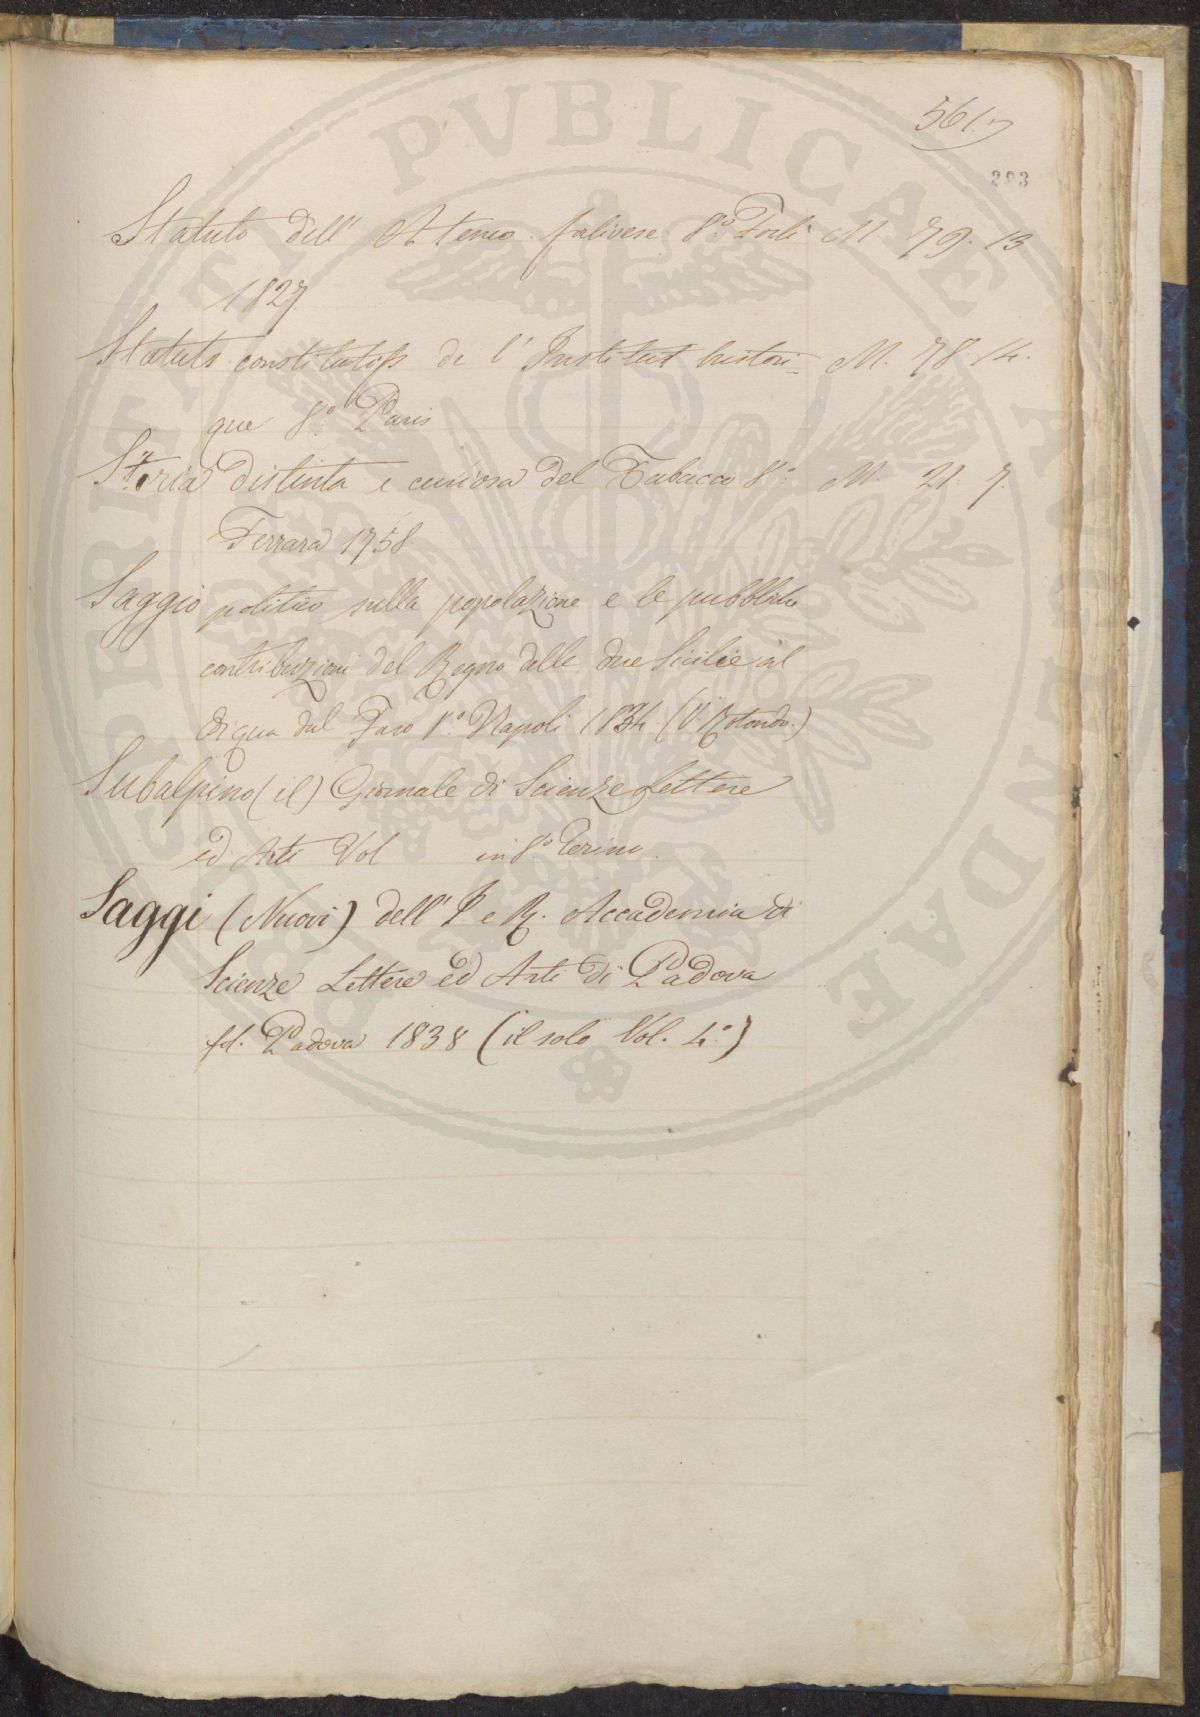 561.
293
Statuto dell' Ateneo folivese 8.o Forlì M. 79. 13
1827
Statuts constitutifs de l' Institut histori- M. 78. 14.
que 8.o Paris
Storia distinta e curiosa del Tabacco 8.o M. 21. 7.
Ferrara 1758
Saggio politico sulla popolazione e le pubbliche
contribuzioni del Regno delle due Sicilie al
diqua dal Faro 8.o Napoli 1834. (V. Rotondo.)
Subalpino (il) Giornale di Scienze Lettere
ed Arti Vol in 8.o Torino
Saggi (Nuovi) dell' I e R. Accademia di
Scienze Lettere ed Arti di Padova
fol. Padova 1838 (il solo Vol. 4.o)
PUBLICAE